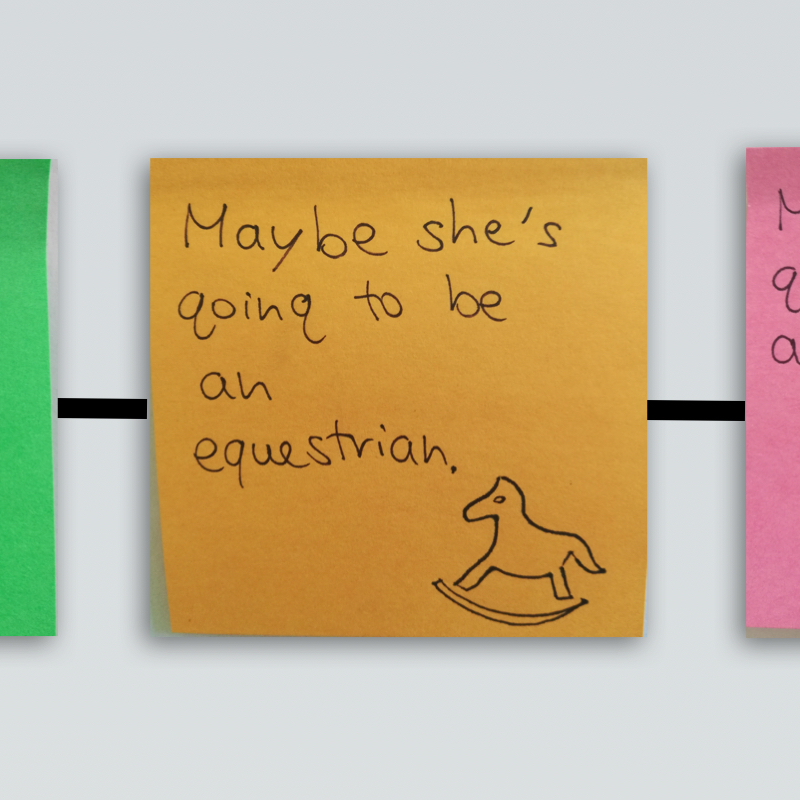 Maybe she's
going to be
an
equestrian.